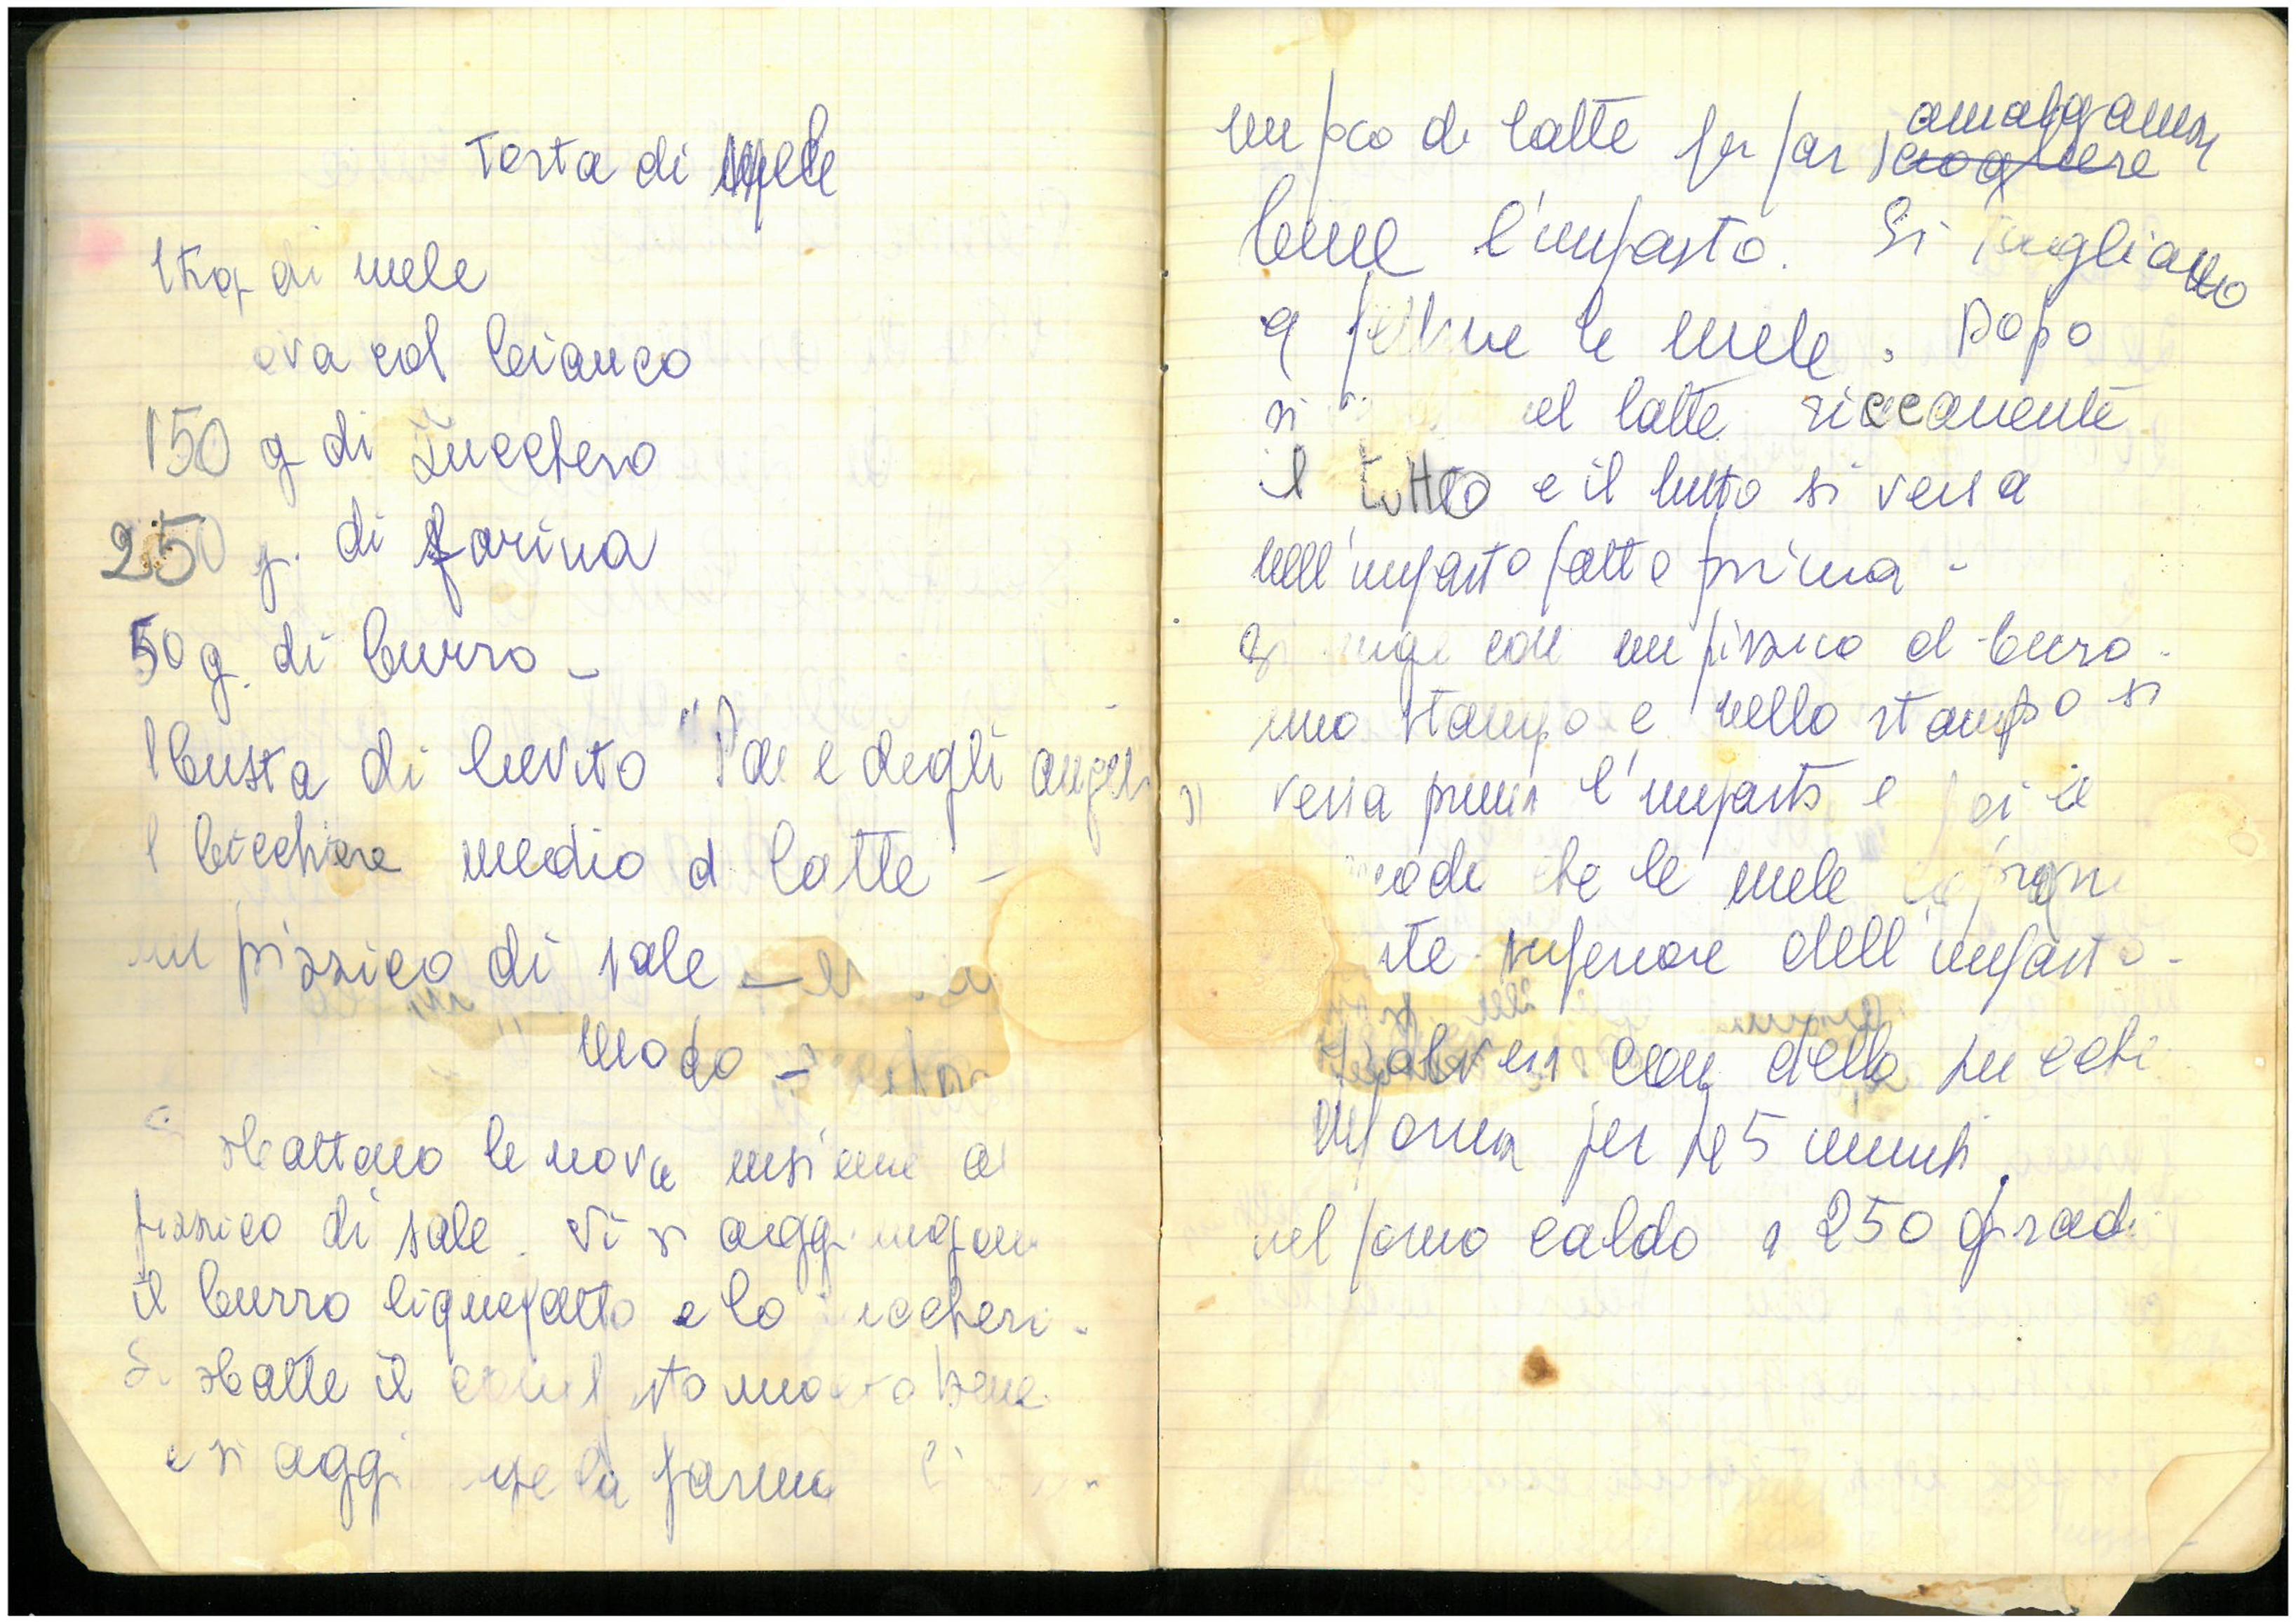 Torta di mele
1 kg di mele
ova col bianco
150 g di zucchero
250 g. di farina
50 g. di burro -
1 busta di lievito "Pane degli angeli
1 bicchiere medio di latte -
un pizzico di sale -
Modo -
sbattano le uova insieme al
pizzico di sale. Vi si aggiungono
il burro liquefatto e lo zucchero -
Si sbatte il bene
e si aggiunge la farina
un poco di latte per far sciogliere amalgamar
bene l'impasto. Si tagliano
a fettine le mele. Dopo
si nel latte
il tutto e il tutto si versa
nell'impasto fatto prima -
Si unge con un pizzico di burro -
uno stampo e nello stampo si
versa prima l'impasto e poi
modo che le mele
superiore dell'impasto -
con dello
Inforna per minuti
nel forno caldo a 250 gradi